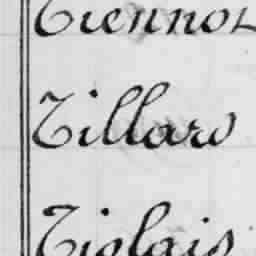 Tiennot
Tillard
Tiolais